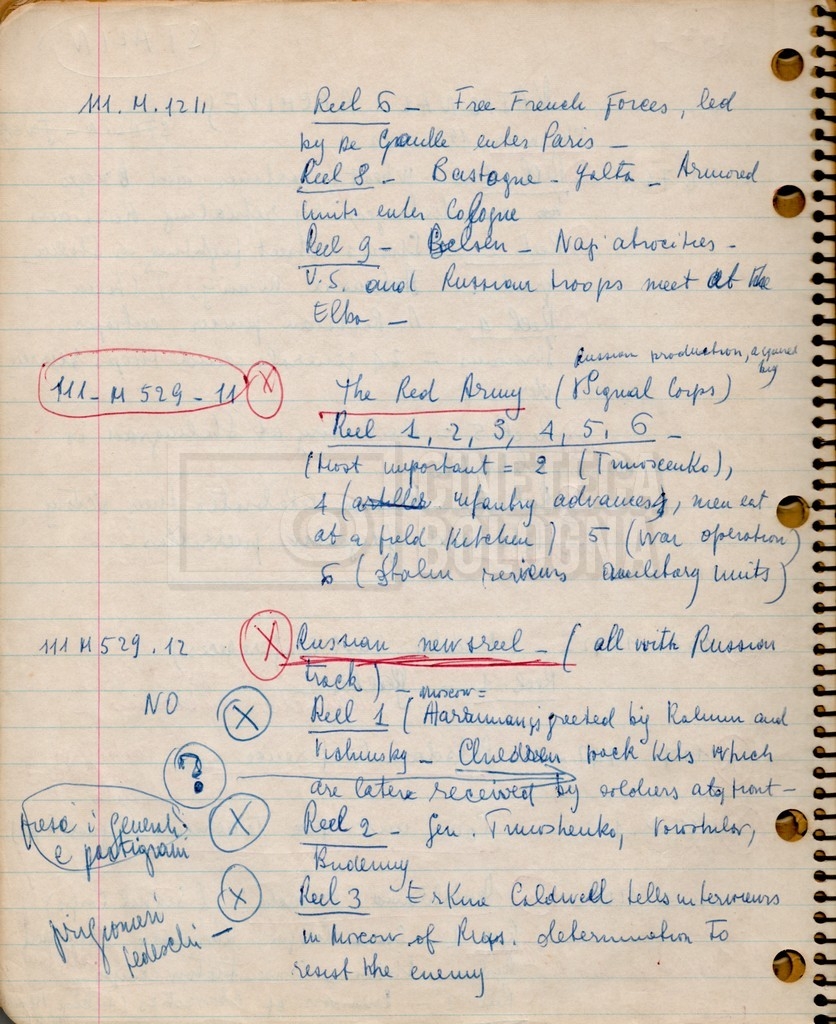 111. M. 1211 Reel 6 – Free French Forces, led
by De Gaulle enter Paris –
Reel 8 – Bastogne – Yalta – Armored
units enter Cologne
Reel 9 – Belsen – Nazi atrocities –
U.S. and Russian troops meet at the
Elba –
Russian production, acquired
by
111 – M 529 – 11 X The Red Army (Signal Corps)
Reel 1, 2, 3, 4, 5, 6 –
(Most important = 2 (Timoscenko),
4 (infantry advances, men eat
at a field kitchen) 5 (war operation)
6 (Stalin reviews units)
CINETECA
BOLOGNA
111 M 529 . 12 X Russian newsreel – (all with Russian
track) – Moscow =
NO X Reel 1 (Harriman is greeted by and
Vishinsky – Children pack kits which
? are later received by soldiers at front –
i generali X Reel 2 – Gen. Timoshenko, Voroshilov,
e partigiani Budenny
X Reel 3 Erskine Caldwell tells interviewers
prigionieri in Moscow of Russ. determination to
tedeschi – resist the enemy